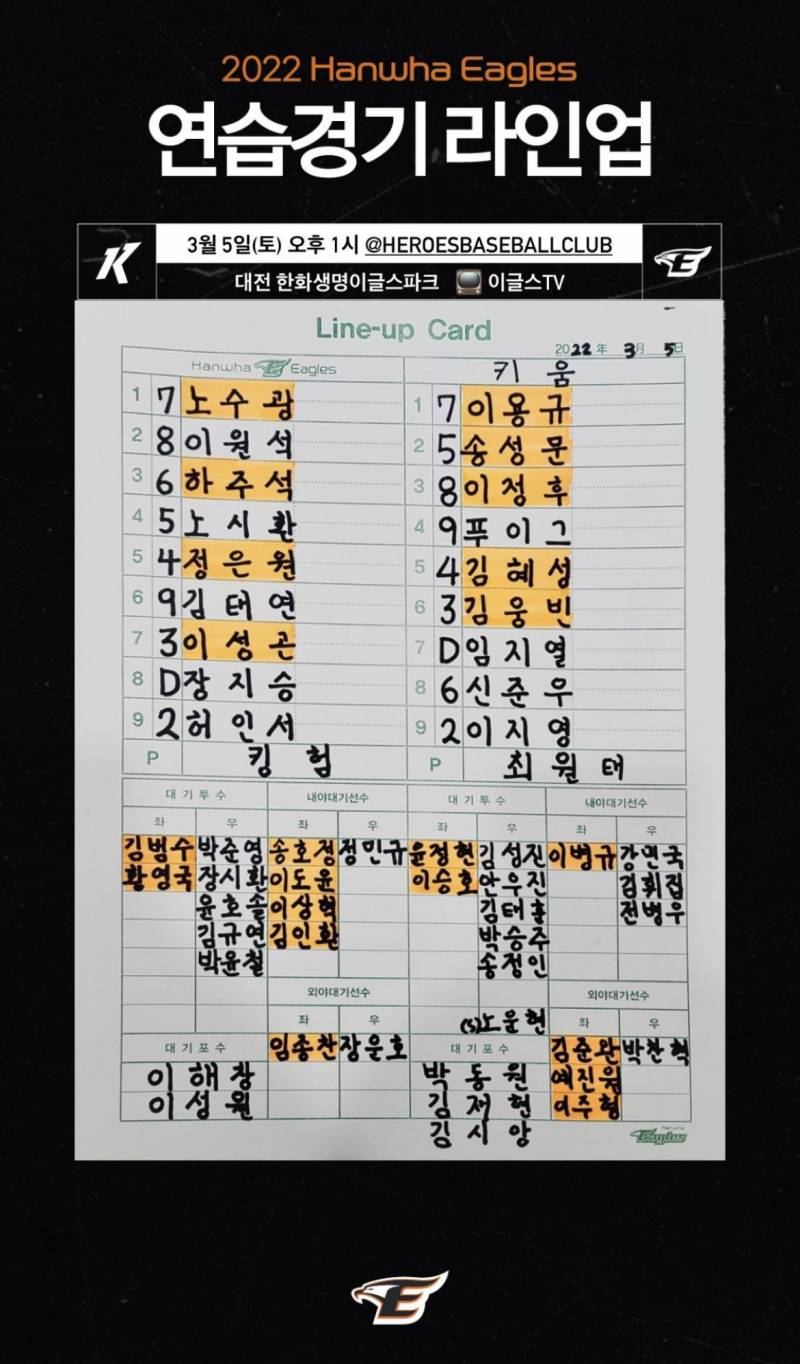 2022 Hanwha Eagles
연습경기 라인업
3월 5일(토) 오후 1시 @HEROESBASEBALLCLUB
대전 한화생명이글스파크 이글스TV
Line-up Card
2022年 3月 5日
Hanwha Eagles 키움
1 7 노수광 1 7 이용규
2 8 이원석 2 5 송성문
3 6 하주석 3 8 이정후
4 5 노시환 4 9 푸이그
5 4 정은원 5 4 김혜성
6 9 김태연 6 3 김웅빈
7 3 이성곤 7 D 임지열
8 D 장지승 8 6 신준우
9 2 허인서 9 2 이지영
P 킹험 P 최원태
대기투수 내야대기선수 대기투수 내야대기선수
좌 우 좌 우 좌 우 좌 우
김범수 박준영 송호정 정민규 윤정현 김성진 이병규 강민국
황영국 장시환 이도윤 이승호 안우진 김휘집
윤호솔 이상혁 김태훈 전병우
김규연 김인환 박승주
박윤철 송정인
외야대기선수 외야대기선수
좌 우 (S)노운현 좌 우
대기포수 임종찬 장운호 대기포수 김준완 박찬혁
이해창 박동원 예진원
이성원 김재현 이주형
김시앙
Hanwha Eagles